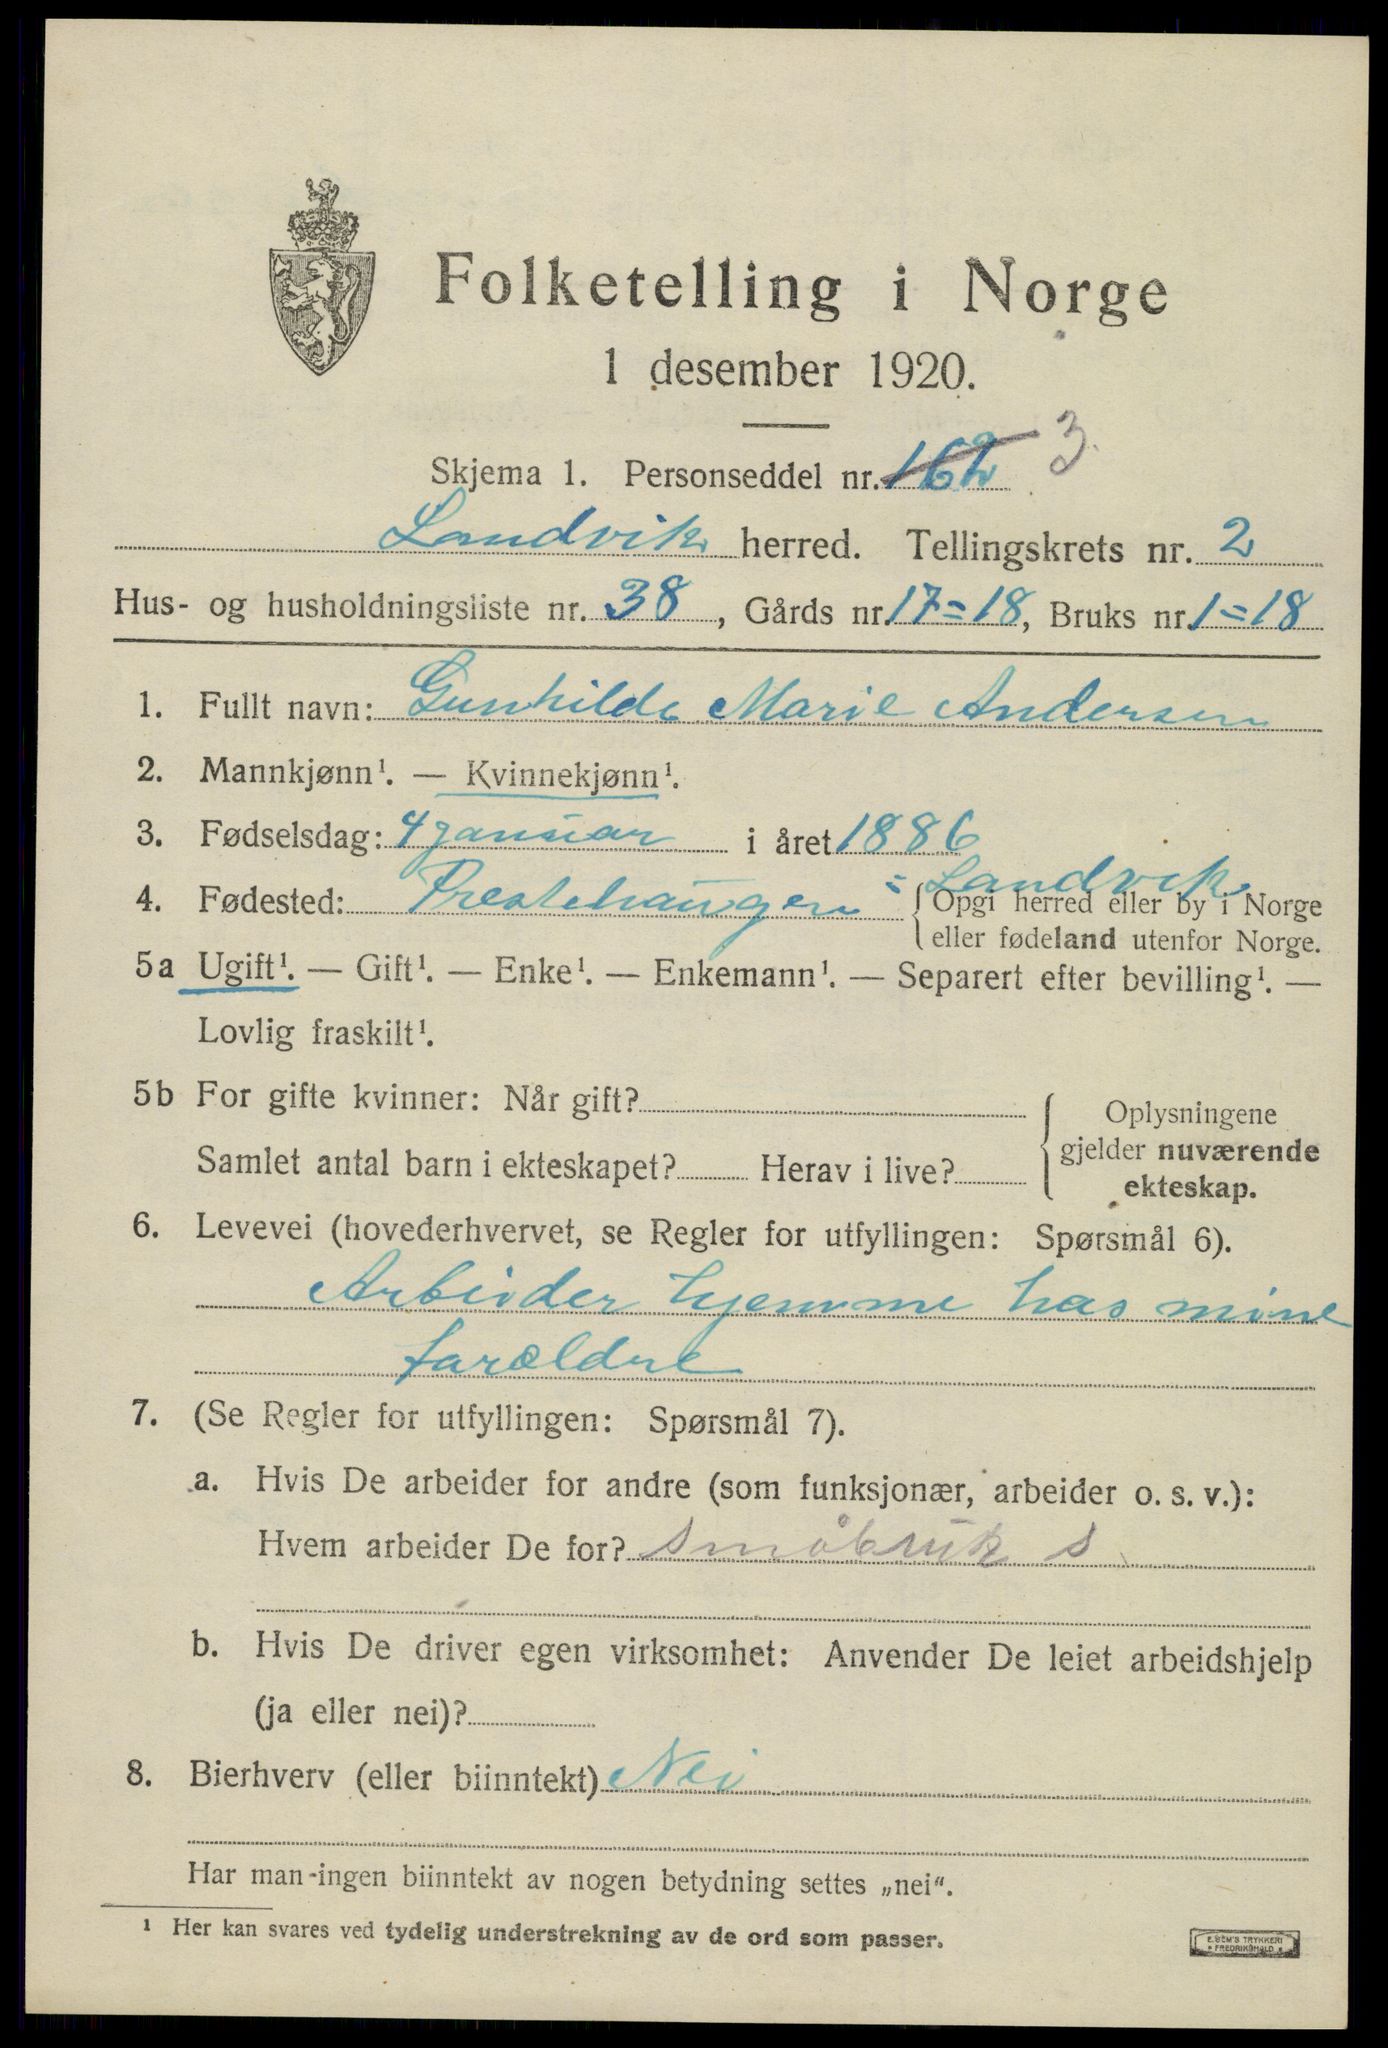 Folketelling i Norge
1 desember 1920.
Skjema 1. Personseddel nr. 162 3.
Landvik herred. Tellingskrets nr. 2
Hus- og husholdningsliste nr. 38, Gårds nr. 17=18, Bruks nr. 1=18
1. Fullt navn: Gunhilde Marie Andersen
2. Mannkjønn¹. — Kvinnekjønn¹.
3. Fødselsdag: 4 januar i året 1886
4. Fødested: Prestehaugen = Landvik
{Opgi herred eller by i Norge
eller fødeland utenfor Norge.
5a Ugift¹. — Gift¹. — Enke¹. — Enkemann¹. — Separert efter bevilling¹. —
Lovlig fraskilt¹.
5b For gifte kvinner: Når gift?
Samlet antal barn i ekteskapet? Herav i live?
{Oplysningene
gjelder nuværende
ekteskap.
6. Levevei (hovederhvervet, se Regler for utfyllingen: Spørsmål 6).
Arbeider hjemme hos mine
forældre
7. (Se Regler for utfyllingen: Spørsmål 7).
a. Hvis De arbeider for andre (som funksjonær, arbeider o. s. v.):
Hvem arbeider De for? småbruk s
b. Hvis De driver egen virksomhet: Anvender De leiet arbeidshjelp
(ja eller nei)?
8. Bierhverv (eller biinntekt) Nei
Har man ingen biinntekt av nogen betydning settes „nei“.
¹ Her kan svares ved tydelig understrekning av de ord som passer.
E. SEM'S TRYKKERI
FREDRIKSHALD